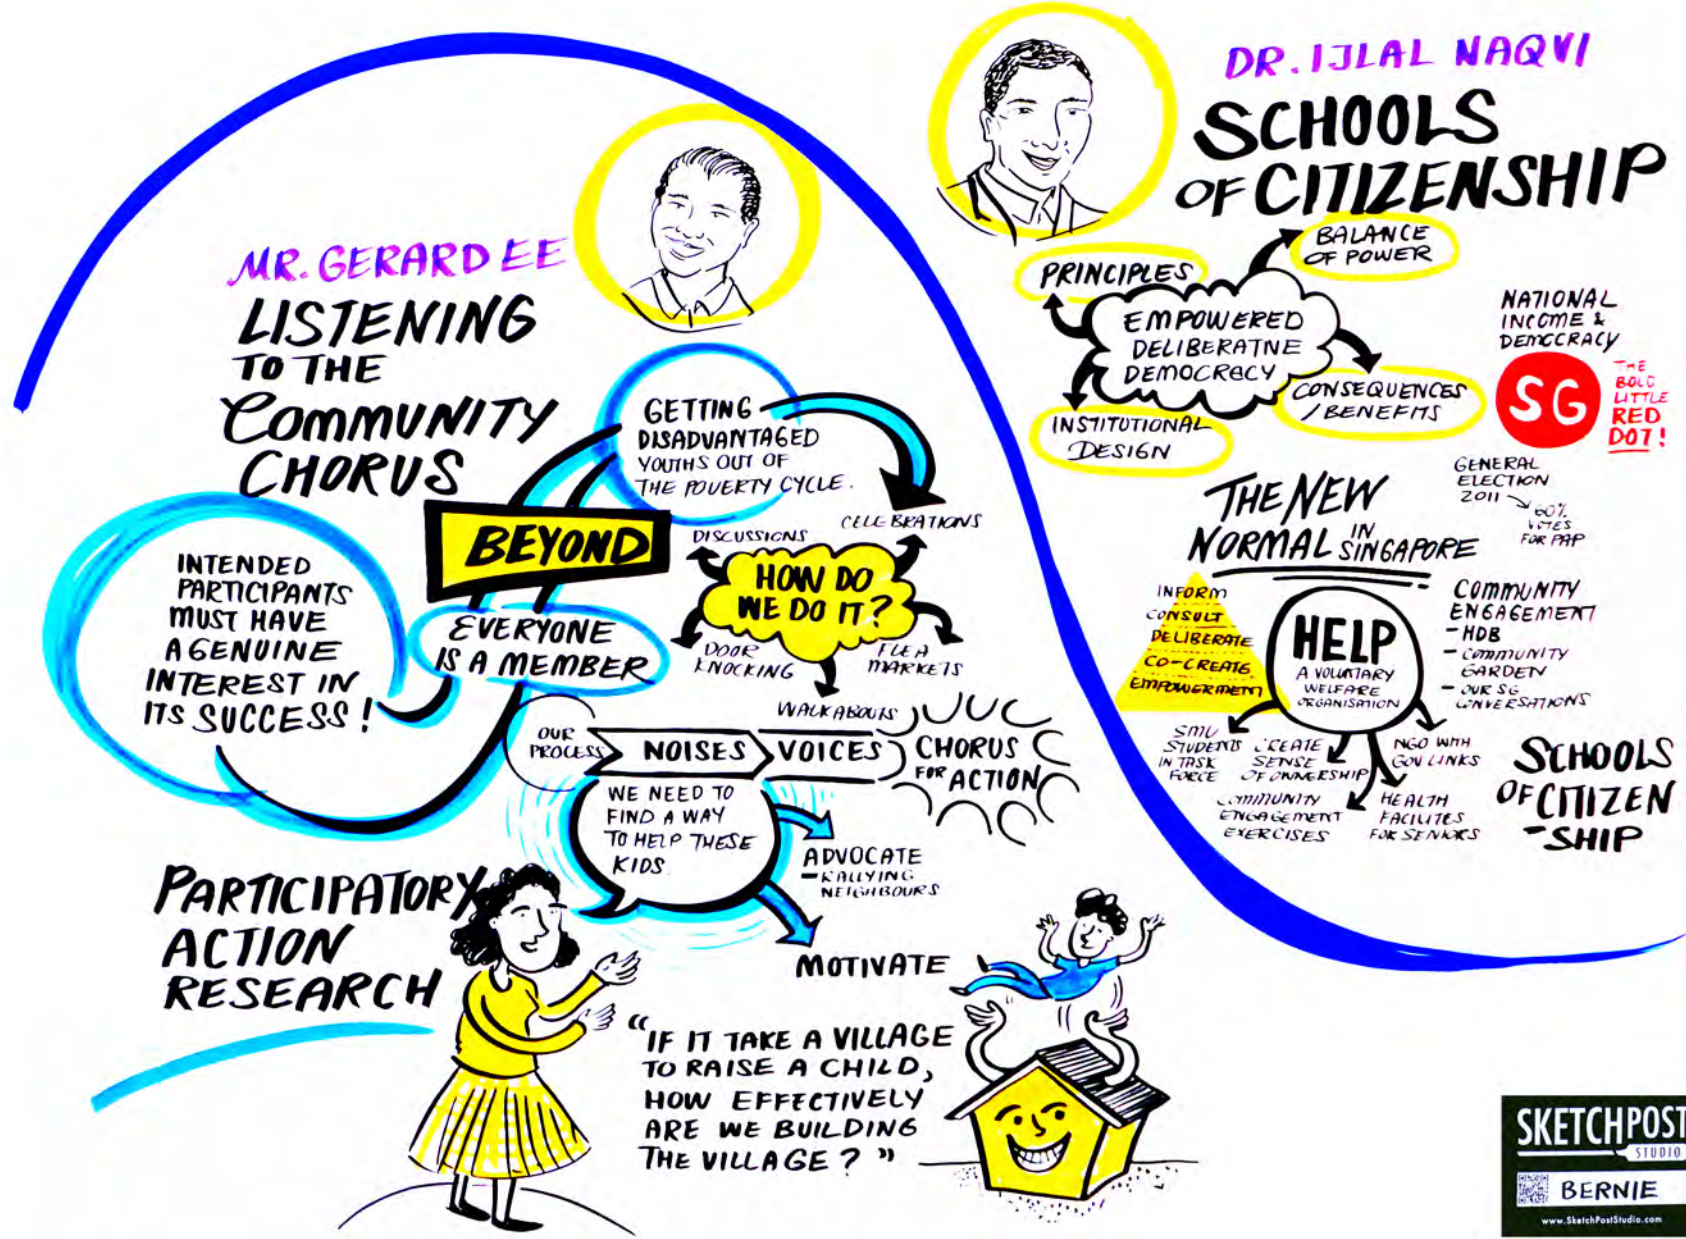 MR. GERARD EE
LISTENING
TO THE
COMMUNITY
CHORUS
GETTING
DISADVANTAGED
YOUTHS OUT OF
THE POVERTY CYCLE.
BEYOND
INTENDED
PARTICIPANTS
MUST HAVE
A GENUINE
INTEREST IN
ITS SUCCESS!
EVERYONE
IS A MEMBER
DISCUSSIONS
CELEBRATIONS
HOW DO
WE DO IT?
DOOR
KNOCKING
FLEA
MARKETS
WALKABOUTS
OUR
PROCESS
NOISES
VOICES
CHORUS
FOR ACTION
WE NEED TO
FIND A WAY
TO HELP THESE
KIDS.
ADVOCATE
- RALLYING
NEIGHBOURS
MOTIVATE
PARTICIPATORY
ACTION
RESEARCH
"IF IT TAKE A VILLAGE
TO RAISE A CHILD,
HOW EFFECTIVELY
ARE WE BUILDING
THE VILLAGE?"
DR. IJLAL NAQVI
SCHOOLS
OF CITIZENSHIP
PRINCIPLES
BALANCE
OF POWER
EMPOWERED
DELIBERATIVE
DEMOCRACY
CONSEQUENCES
/BENEFITS
INSTITUTIONAL
DESIGN
NATIONAL
INCOME &
DEMOCRACY
SG
THE
BOLD
LITTLE
RED
DOT!
GENERAL
ELECTION
2011
60%
VOTES
FOR PAP
THE NEW
NORMAL IN
SINGAPORE
INFORM
CONSULT
DELIBERATE
CO-CREATE
EMPOWERMENT
HELP
A VOLUNTARY
WELFARE
ORGANISATION
COMMUNITY
ENGAGEMENT
- HDB
- COMMUNITY
GARDEN
- OUR SG
CONVERSATIONS
SMU
STUDENTS
IN TASK
FORCE
CREATE
SENSE
OF OWNERSHIP
NGO WITH
GOV LINKS
COMMUNITY
ENGAGEMENT
EXERCISES
HEALTH
FACILITES
FOR SENIORS
SCHOOLS
OF CITIZEN
-SHIP
SKETCHPOST
STUDIO
BERNIE
www.SketchPostStudio.com